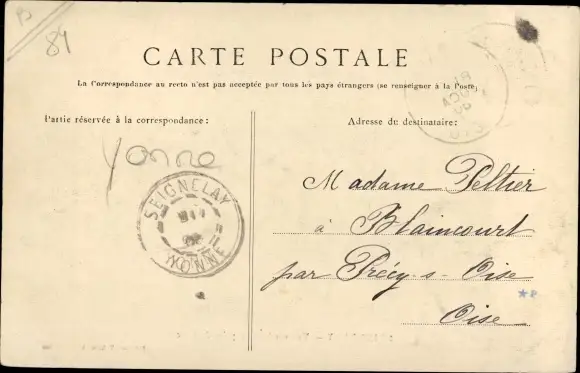 84
CARTE POSTALE
La Correspondance au recto n'est pas acceptée par tous les pays étrangers (se renseigner à la Poste)
Partie réservée à la correspondance :
Adresse du destinataire :
Yonne
SEIGNELAY
YONNE
18
AOUT
Madame Peltier
à Blaincourt
par Précy-s-Oise
Oise